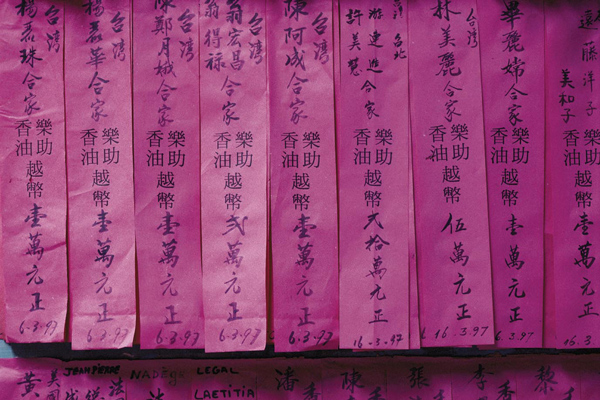 台灣
合家
樂助
香油
越幣
壹萬元正
6.3.97
台灣
合家
樂助
香油
越幣
壹萬元正
6.3.97
台灣
陳鄭月娥合家
樂助
香油
越幣
壹萬元正
6.3.97
台灣
翁宏昌合家
翁得禄
樂助
香油
越幣
弍萬元正
6.3.97
台灣
陳阿成合家
樂助
香油
越幣
壹萬元正
6.3.97
台北
游連進合家
許美慧
樂助
香油
越幣
弍拾萬元正
16.3.97
台灣
林美麗合家
樂助
香油
越幣
伍萬元正
16.3.97
畢麗嫦合家
樂助
香油
越幣
壹萬元正
6.3.97
遠藤洋子
美和子
香油
越幣
壹萬元正
16.3.
黄
美國
JEAN PIERRE
法
NADÈGE
法
LEGAL
LAETITIA
潘
陳
張
李
黎